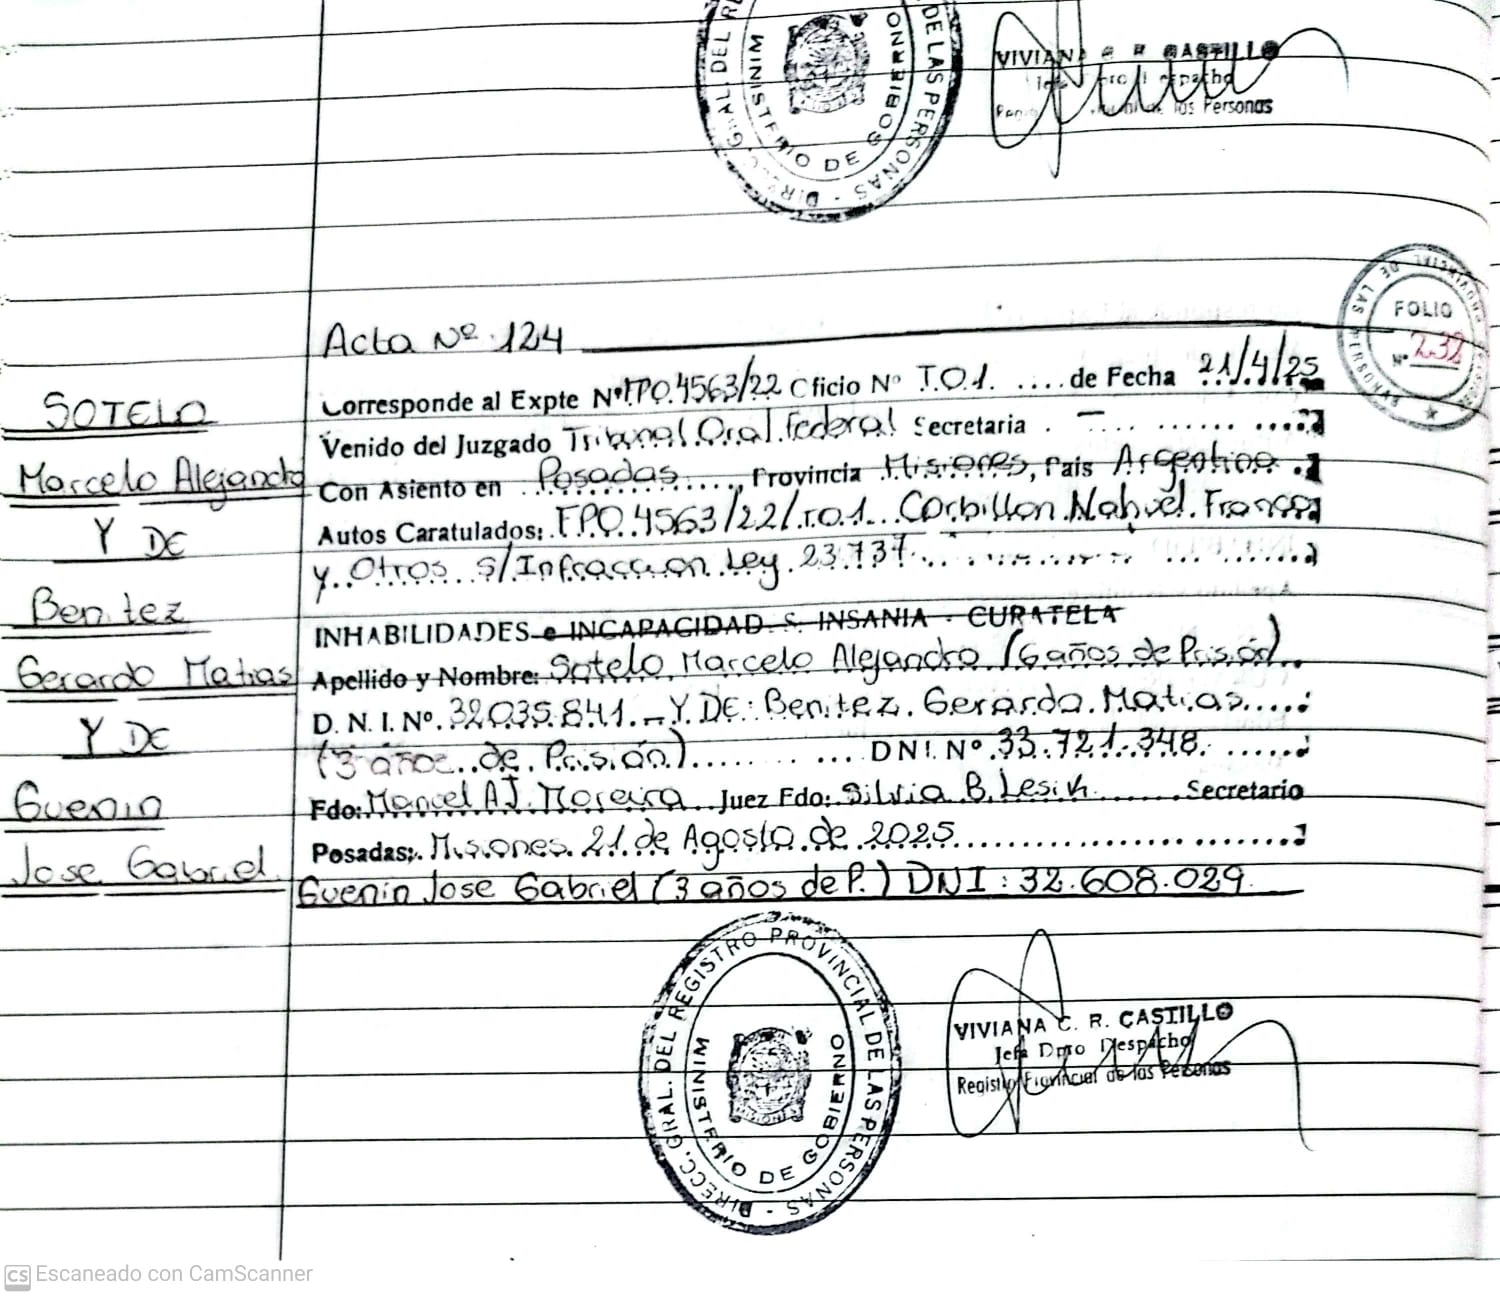 DIRECC. GRAL. DEL RE DE LAS PERSONAS
MINISTERIO DE GOBIERNO
VIVIANA C. R. CASTILLO
Jefe Dpto Despacho
de las Personas
FOLIO
Nº 232
PROVINCIAL DE LAS PERSONAS
Acta Nº 124
Corresponde al Expte Nº FPO.4563/22 Oficio Nº T.O.1. .... de Fecha 21/4/25
Venido del Juzgado Tribunal Oral Federal Secretaria . — ....
Con Asiento en Posadas ...., Provincia Misiones, País Argentina.
Autos Caratulados: FPO.4563/22/T.O.1... Corbillon Nahuel Franco
y Otros s/Infraccion Ley 23.737.
INHABILIDADES e INCAPACIDAD S. INSANIA - CURATELA
Apellido y Nombre: Sotelo, Marcelo Alejandro (6 años de Prisión)
D. N. I. Nº. 32.035.841. – Y DE: Benitez Gerardo Matias....
(3 años de Prisión).... DNI. Nº 33.721.348.
Fdo: Manuel A.J. Moreira Juez Fdo: Silvia B. Lesik Secretario
Posadas: Misiones 21 de Agosto de 2025
Guenin Jose Gabriel (3 años de P.) DNI: 32.608.029
SOTELO
Marcelo Alejandro
Y DE
Benitez
Gerardo Matias
Y DE
Guenin
Jose Gabriel
DIRECC. GRAL. DEL REGISTRO PROVINCIAL DE LAS PERSONAS
MINISTERIO DE GOBIERNO
MISIONES
VIVIANA C. R. CASTILLO
Jefa Dpto Despacho
Registro Provincial de las Personas
CS Escaneado con CamScanner